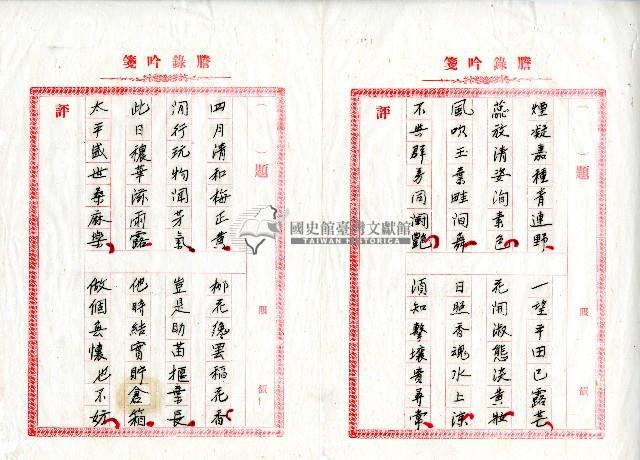 謄錄吟箋
（ ）題
煙凝嘉種青連野
一望平田已露芒
蕊放清姿洵素色
花開淑態淡黃妝
風吹玉葉畦間舞
日照香魂水上涼
不與群芳同鬪艷
須知擊壤貴尋常
評
謄錄吟箋
（ ）題
四月清和梅正黃
柳花纔罷稻花香
閒行玩物聞芳氣
豈是助苗握葉長
此日穠華滋雨露
他時結實貯倉箱
太平盛世桑麻樂
做個無懷也不妨
評
國史館臺灣文獻館
TAIWAN HISTORICA